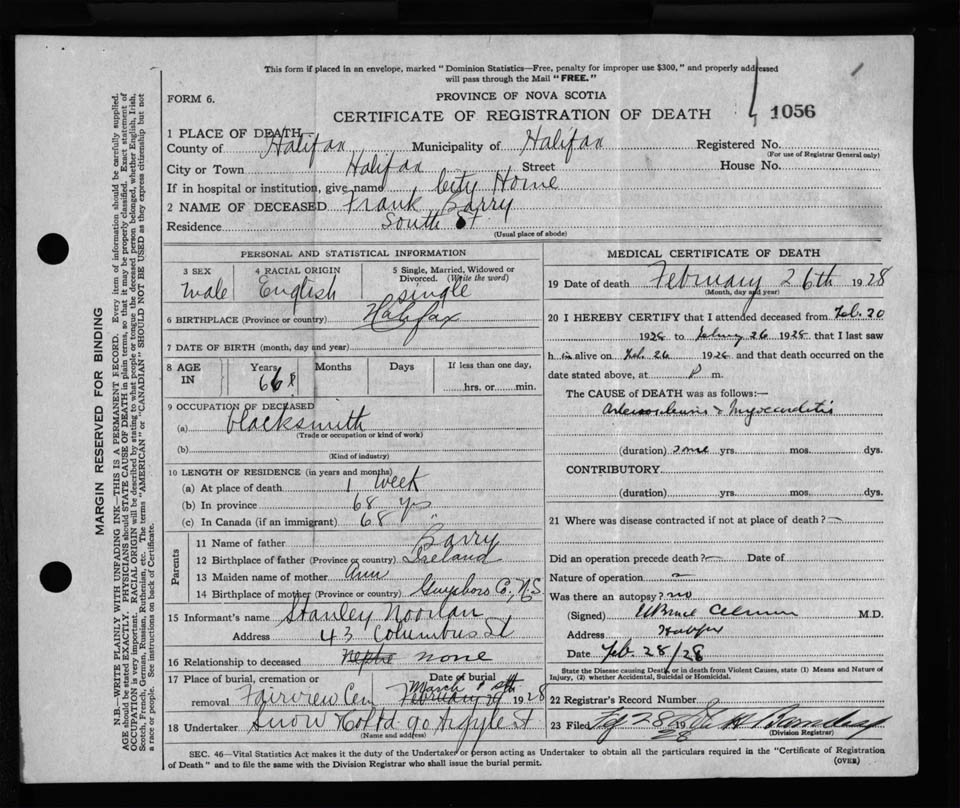 This form if placed in an envelope, marked "Dominion Statistics—Free, penalty for improper use $300," and properly addressed
will pass through the Mail "FREE."
FORM 6.
PROVINCE OF NOVA SCOTIA
CERTIFICATE OF REGISTRATION OF DEATH
1056
1 PLACE OF DEATH—
County of Halifax Municipality of Halifax Registered No.
(For use of Registrar General only)
City or Town Halifax Street House No.
If in hospital or institution, give name City Home
2 NAME OF DECEASED Frank Barry
Residence South St
(Usual place of abode)
PERSONAL AND STATISTICAL INFORMATION
3 SEX 4 RACIAL ORIGIN 5 Single, Married, Widowed or
Divorced. (Write the word)
male English single
6 BIRTHPLACE (Province or country) Halifax
7 DATE OF BIRTH (month, day and year)
8 AGE IN Years Months Days If less than one day,
68 hrs. or min.
9 OCCUPATION OF DECEASED
(a) blacksmith
(Trade or occupation or kind of work)
(b)
(Kind of industry)
10 LENGTH OF RESIDENCE (in years and months)
(a) At place of death 1 week
(b) In province 68 yrs
(c) In Canada (if an immigrant) 68 "
Parents
11 Name of father Barry
12 Birthplace of father (Province or country) Ireland
13 Maiden name of mother Ann
14 Birthplace of mother (Province or country) Guysboro Co, N.S.
15 Informant's name Stanley
Address 43 Columbus St
16 Relationship to deceased none
17 Place of burial, cremation or Date of burial
removal Fairview Cem March 1928
18 Undertaker Snow Co Ltd 90 Argyle St
(Name and address)
MEDICAL CERTIFICATE OF DEATH
19 Date of death February 26th 1928
(Month, day and year)
20 I HEREBY CERTIFY that I attended deceased from Feb. 20
1928 to 26 1928 that I last saw
h im alive on Feb 26 1928 and that death occurred on the
date stated above, at P m.
The CAUSE OF DEATH was as follows:—
Myocarditis
(duration) some yrs. mos. dys.
CONTRIBUTORY
(duration) yrs. mos. dys.
21 Where was disease contracted if not at place of death? —
Did an operation precede death? — Date of
Nature of operation —
Was there an autopsy? no
(Signed) M.D.
Address Halifax
Date Feb. 28/28
State the Disease causing Death, or in death from Violent Causes, state (1) Means and Nature of
Injury, (2) whether Accidental, Suicidal or Homicidal.
22 Registrar's Record Number
23 Filed 28 1928
(Division Registrar)
SEC. 46—Vital Statistics Act makes it the duty of the Undertaker or person acting as Undertaker to obtain all the particulars required in the "Certificate of Registration
of Death" and to file the same with the Division Registrar who shall issue the burial permit.
(OVER)
MARGIN RESERVED FOR BINDING
N.B.—WRITE PLAINLY WITH UNFADING INK—THIS IS A PERMANENT RECORD. Every item of information should be carefully supplied.
AGE should be stated EXACTLY. PHYSICIANS should STATE CAUSE OF DEATH in plain terms, so that it may be properly classified. Exact statement of
OCCUPATION is very important. RACIAL ORIGIN will be described by stating to what people or tongue the deceased person belonged, whether English, Irish,
Scotch, French, German, Russian, Ruthenian, etc. The terms "AMERICAN" or "CANADIAN" SHOULD NOT BE USED as they express citizenship but not
a race or people. See instructions on back of Certificate.